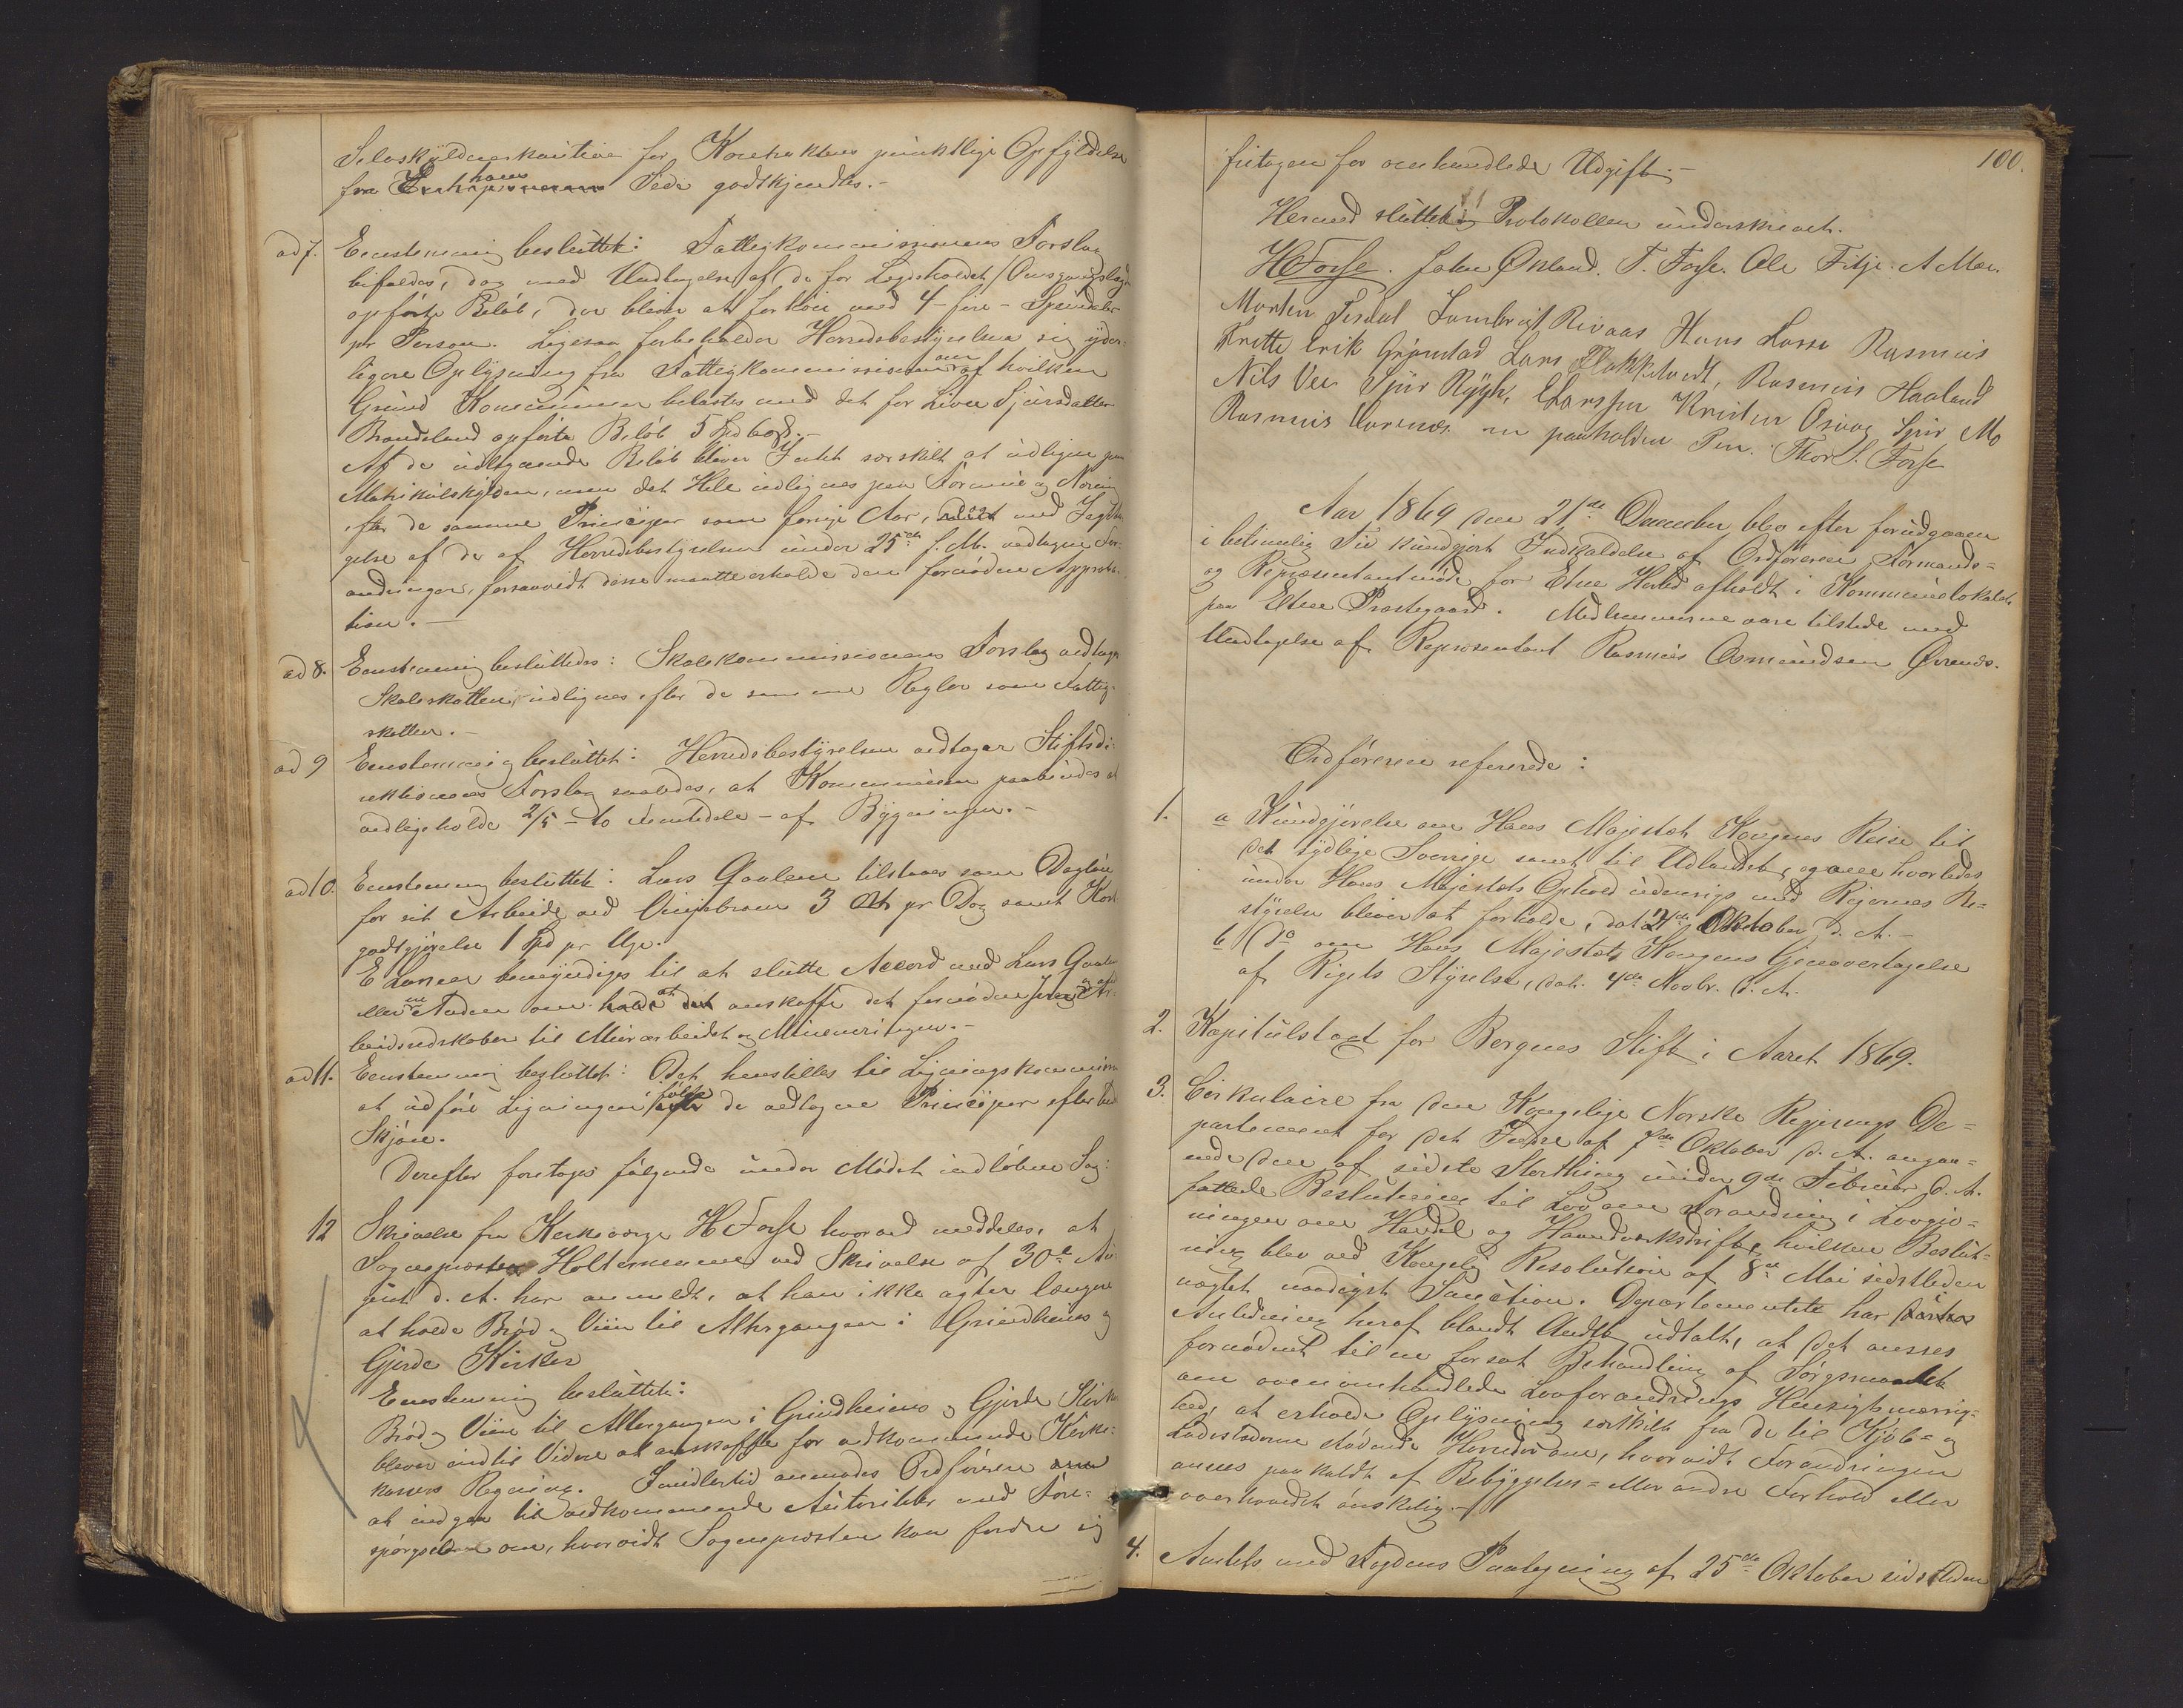 Selvskyldnerkaution for Kontraktens pünktlige Opfyldelse
fra hans Side godkjendtes.-
ad 7. Eenstemmig beslüttet: Fattigkommissionens Forslag
bifaldes, dog med Undtagelse af de for Lægdsholdet
opførte Beløb, der bliver at forhøie med 4 - fire - Speciedaler
pr Person. Ligesaa forbeholder Herredsbestyrelsen sig yder-
ligere Oplysning fra Fattigkommissionen om af hvilken
Gründ Kommünen belastes med det for Liva Sjürsdatter
Brandeland opførte Beløb 5 Spd 60 ß.-
Af de üdlignende Beløb bliver Intet særskilt at üdligne paa
Matrikülskylden, men det Hele üdlignes paa Formüe og Næring
efter de samme Principer som forrige Aar, med Iagtta-
gelse af de af Herredsbestyrelsen ünder 25de f. M. vedtagne For-
andringer, forsaavidt disse maatte erholde den fornødne Approba-
tion.-
ad 8. Eenstemmig beslüttedes: Skolekommissionens Forslag vedtages
Skoleskatten üdlignes efter de samme Regler som Fattig-
skatten.-
ad 9 Eenstemmig beslüttet: Herredsbestyrelsen vedtager Stiftsdi-
rektionens Forslag saaledes, at Kommünen paabindes at
vedligeholde 2/5 - to Femtedele - af Bygningen.-
ad 10. Eenstemmig beslüttet: Lars Gaalen tilstaaes som Dagløn
for sit Arbeide ved 3 Ort pr Dag samt Kost-
godtgjørelse 1 Spd pr Uge.
E Larsen bemyndiges til at slütte Accord med Lars Gaalen
eller en Anden om at anskaffe det fornødne
beidsredskaber til Mürarbeidet og Mineringen.-
ad 11. Eenstemmig beslüttet: Det henstilles til Ligningskommissionen
at üdføre Ligningen ifølge de vedtagne Principer efter bedste
Skjøn.
Derefter foretoges følgende ünder Mødet indløbne Sag:
12 Skrivelse fra Kirkeværge H Forse hvorved meddeles, at
Sognepræsten Holtermann ved Skrivelse af 30te Au-
güst d. A. har anmeldt, at han ikke agter længere
at holde Brød og Viin til Altergangen i Grindheims og
Gjerde Kirker
Eenstemmig beslüttet:
Brød og Viin til Altergangen i Grindheims og Gjerde Kirker
bliver indtil Videre at anskaffe for vedkommende Kirke-
kassers Regning. Imidlertid anmodes Ordføreren
at indgaa til vedkommende Aütoritet med Fore-
spørgsel om, hvorvidt Sognepræsten kan fordre sig
100.
fritagen for omhandlede Udgift.-
Hermed slüttet og Protokollen ünderskrevet.
HForse. Johan Økland. T. Forse. Ole Fitje. A Moe.
Morten Tesdal Lambrigt Rivaas Hans Lassa Rasmus
Frette Erik Grønstad Lars Flokketvedt, Rasmus Haaland
Nils Vee Sjür Rygh, ELarssen Kristen Osvag Sjür Mo
Rasmus m paaholden Pen. Thor S. Forse
Aar 1869 den 21de December blev efter forüdgaaen
i betimelig Tid kündgjort Indkaldelse af Ordføreren Formands-
og Repræsentantmøde for Etne Herred afholdt i Kommünelokalet
paa Etne Præstegaard. Medlemmerne vare tilstede med
Undtagelse af Repræsentant Rasmus Osmündsen
Ordføreren refererede:
1. a Kündgjørelse om Hans Majestæt Kongens Reise til
det sydlige Sverrige samt til Udlandet, og om hvorledes
ünder Hans Majestæts Ophold üdenrigs med Rigernes Be-
styrelse bliver at forholde, dat 21de Oktober d. A.-
b do om Hans Majestæts Kongens Gjenovertagelse
af Rigets Styrelse, dat. 4de Novbr. d. A.
2. Kapitülstaxt for Bergens Stift i Aaret 1869.
3. Cirkulaire fra den Kongelige Norske Regjerings De-
partement for det Indre af 7de Oktober d. A. angaa-
ende den af sidste Storthing ünder 9de Februar d. A.
fattede Beslütning til Lov om Forandring i Lovgiv-
ningen om Handel og Haandværksdrift, hvilken Beslüt-
ning blev ved Kongelig Resolütion af 8de Mai sidstleden
nægtet naadigst Sanction. Departementet har
Anledning heraf blandt Andet üdtalt, at det ansees
fornødent til en fortsat Behandling af Spørgsmaalet
om ovenomhandlede Lovforandrings Hensigtsmæssig-
hed, at erholde Oplysning særskilt fra de til Kjøb- og
Ladestæderne stødende Herreder om, hvorvidt Forandringen
ansees paakaldt af Bebyggelses- eller andre Forhold eller
overhovedet ønskelig.-
4. Amtets med Fogdens Paategning af 25de Oktober sidstleden